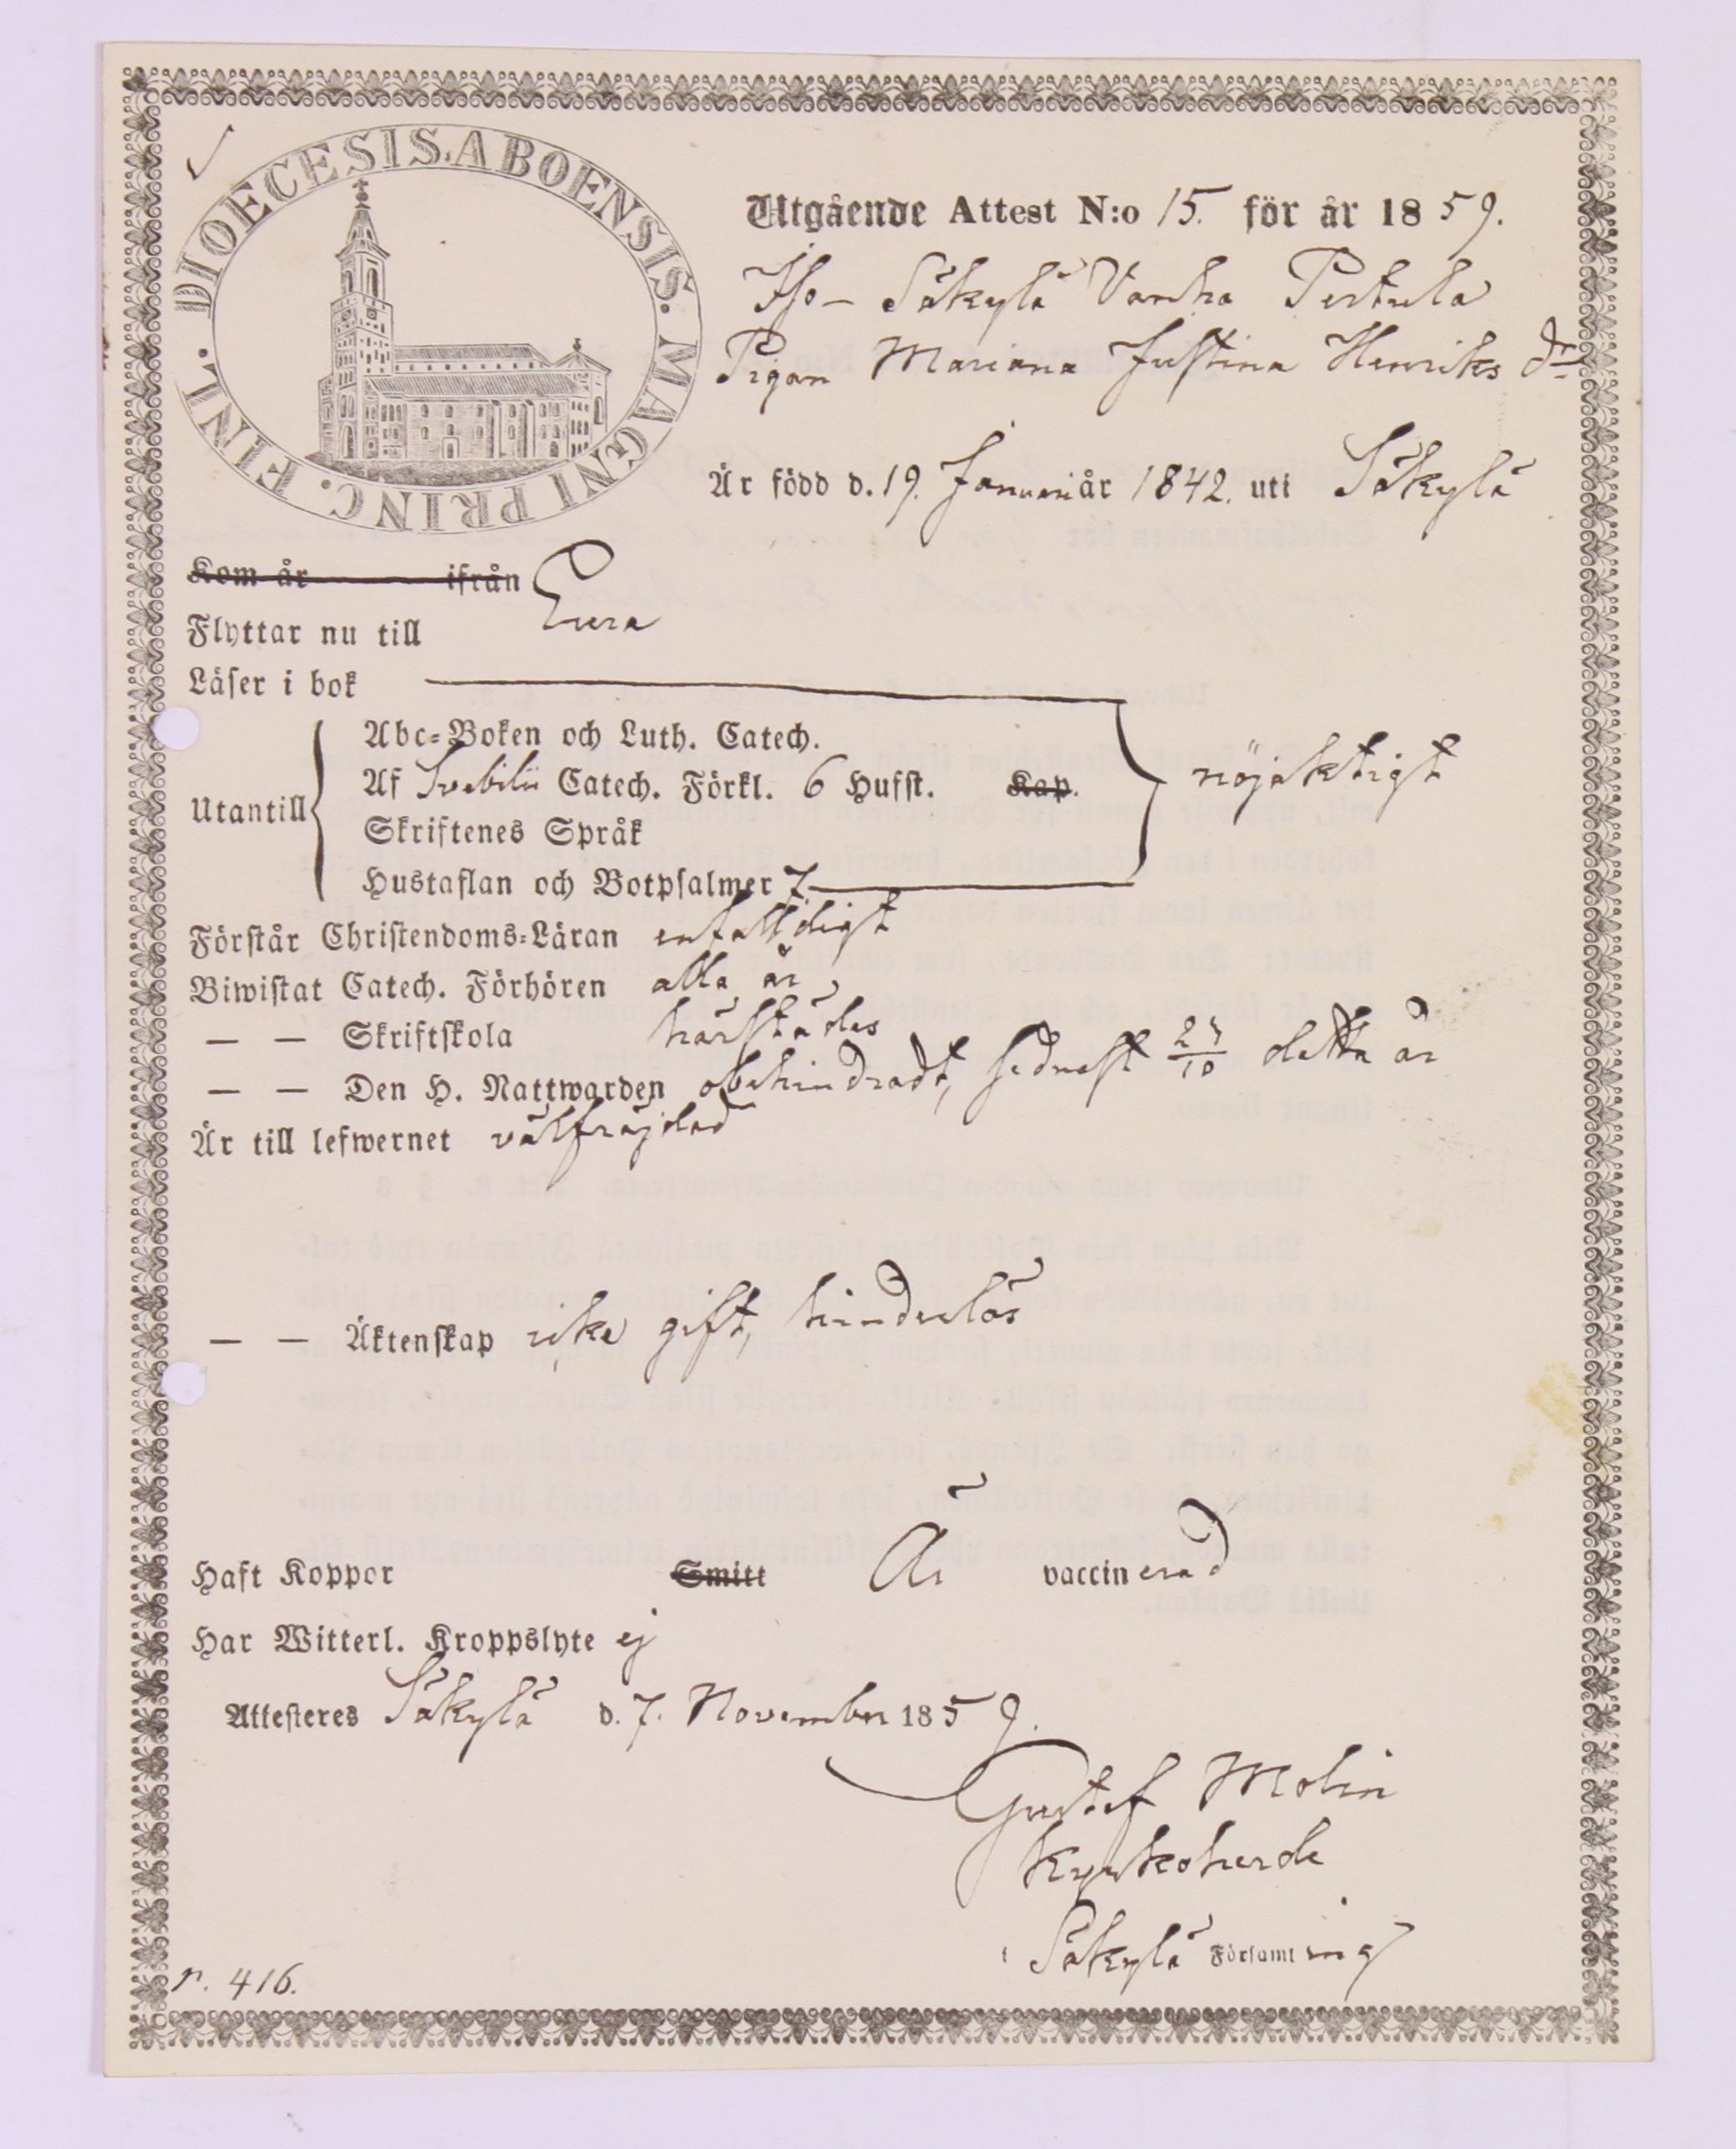 DIOECESIS. ABOENSIS. MAGNI PRINC. FINL.
Utgående Attest N:o 15. för år 1859.
Iso- Säkylä Vanha Pertula
Pigan Mariana Justina Henriks dr
Är född d. 19. Januari år 1842. uti Säkylä
Kom år ifrån
Flyttar nu till Eura
Läser i bok
Abc-Boken och Luth. Catech.
Af Svebilii Catech. Förkl. 6 Hufst. Kap. nöjaktigt
Utantill
Skriftenes Språk
Hustaflan och Botpsalmer 7.
Förstår Christendoms-Läran enfalldigt
Biwistat Catech. Förhören alla år
— — Skriftskola härstädes
— — Den H. Nattwarden obehindradt, sednast 23/10 detta år
Är till lefwernet välfräjdad
— — Äktenskap icke gift, hinderlös
Haft Koppor Smitt Är vaccinerad
Har Witterl. Kroppslyte ej
Attesteres Säkylä d. 7. November 1859.
Gustaf Molin
Kyrkoherde
i Säkylä Församling
n. 416.